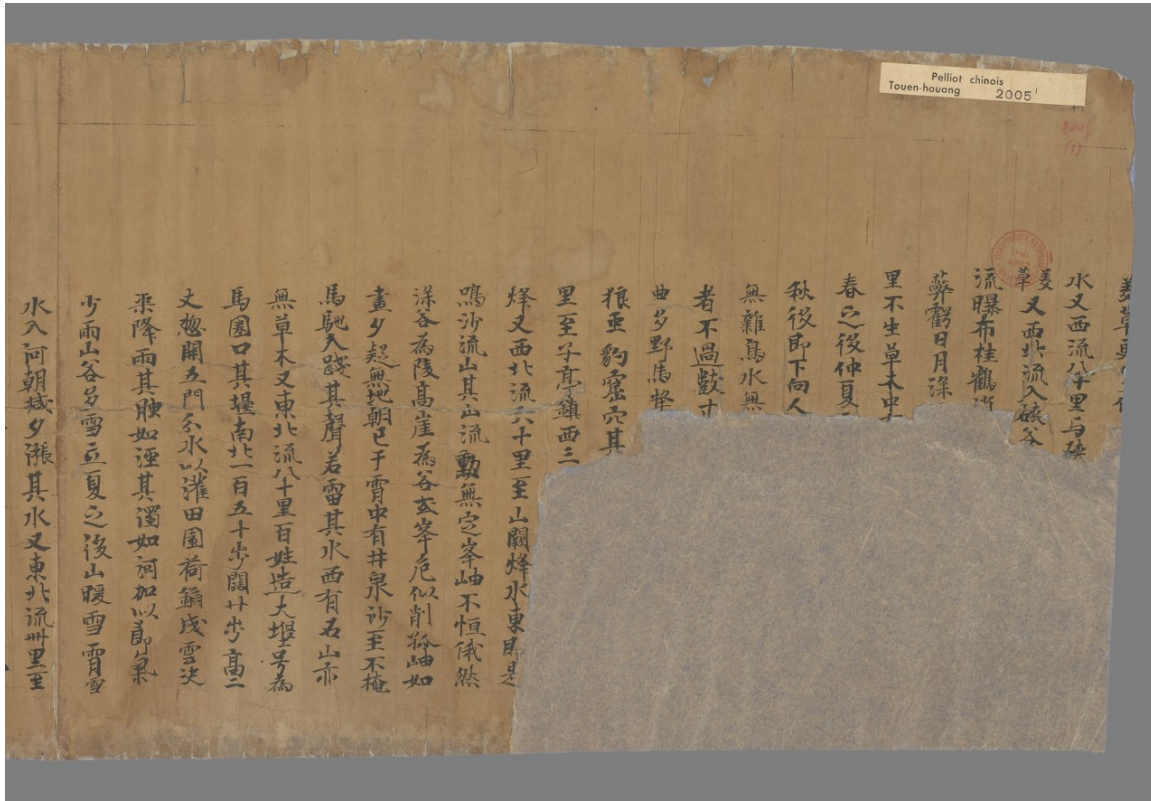 Pelliot chinois
Touen-houang 2005
美草
水又西流八十里与硤
美草又西北流入硤谷
流曝布桂鶴
蔽虧日月深
里不生草木中
春之後仲夏
秋後即下向人
無雜鳥水無
者不過數寸
曲多野馬犛
狼虫豹窟穴其
里至子亭鎮西三
烽又西北流六十里至山闕烽水東即是
鳴沙流山其山流動無定峯岫不恒俄然
深谷為陵高崖為谷或峯危似削孤岫如
畫夕起無地朝已干霄中有井泉沙至不掩
馬馳人踐其聲若雷其水西有石山亦
無草木又東北流八十里百姓造大堰号為
馬圈口其堰南北一百五十步闊廿步高二
丈惣開五門分水以灌田園荷鍤成雲决
渠降雨其腴如涇其濁如河加以節氣
少雨山谷多雪立夏之後山暖雪霄雪
水入河朝減夕漲其水又東北流卌里至